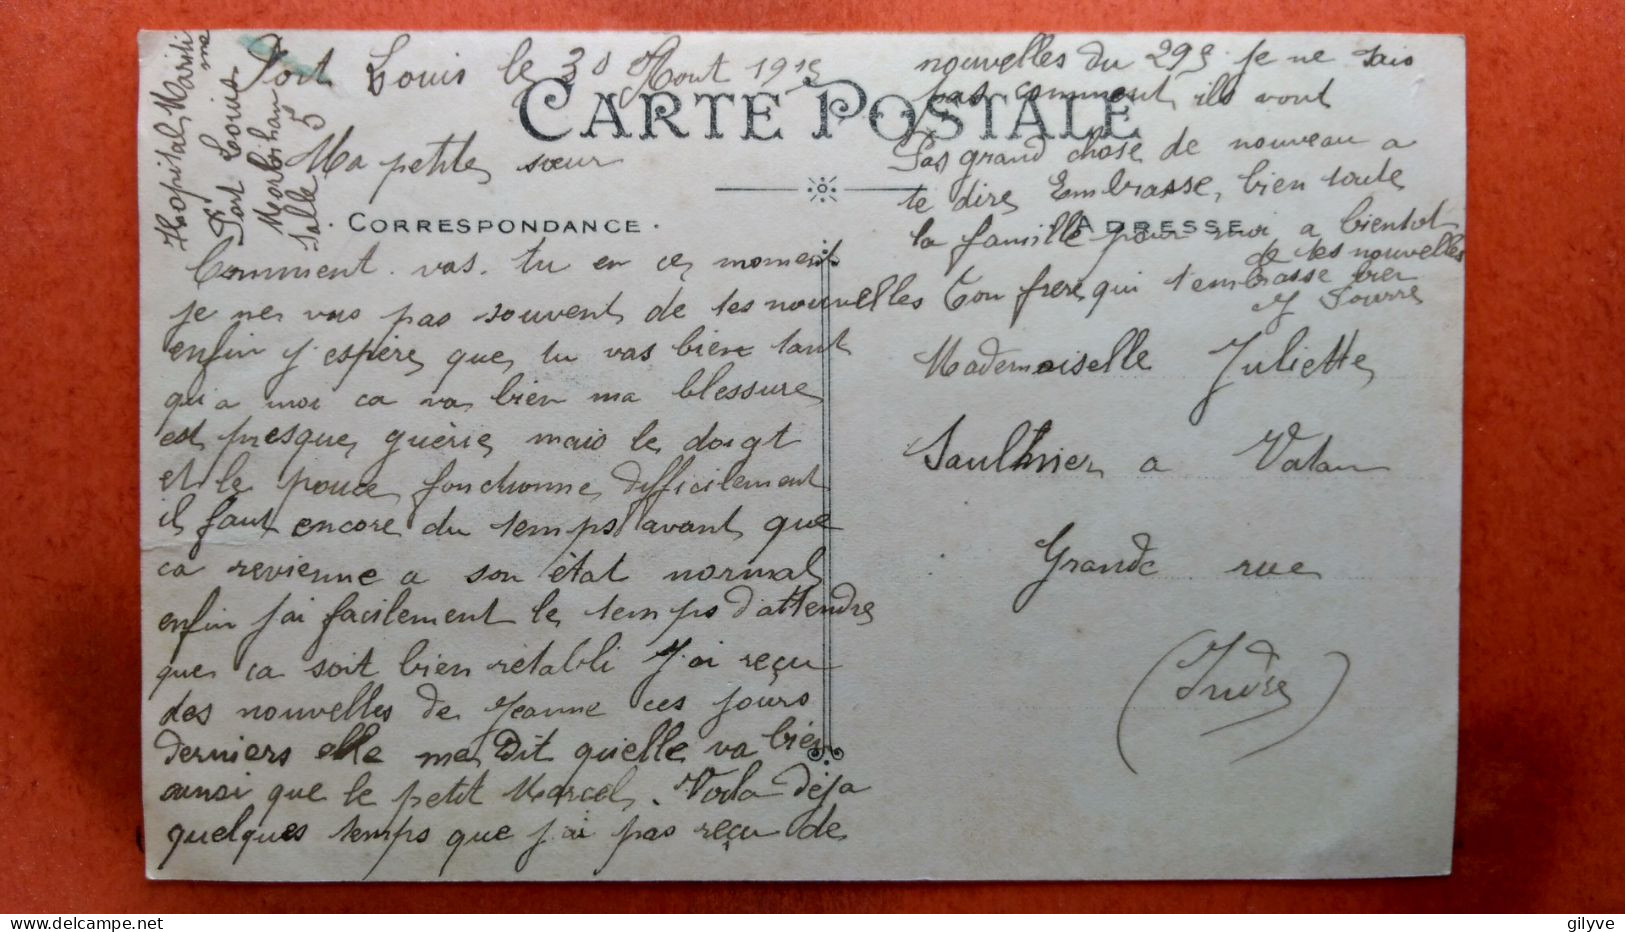 Hopital Mariti
me
Pt Louis
Port Louis
Morbihan
Salle 5
Port Louis le 30 Aout 1915
CARTE POSTALE
Ma petite sœur
CORRESPONDANCE
Comment vas. tu en ce moment
je ne vois pas souvent de tes nouvelles
enfin j'espère que tu vas bien tant
qu'a moi ca va bien ma blessure
est presque guèrie mais le doigt
et le pouce fonctionne difficilement
il faut encore du temps avant que
ca revienne a son ètat normal
enfin j'ai facilement le temps d'attendre
que ca soit bien rètabli J'ai reçu
des nouvelles de Jeanne ces jours
derniers elle me dit quielle va bien
ainsi que le petit Marcel. Voila dèja
quelques temps que j'ai pas reçu de
nouvelles du 295 je ne sais
pas comment ils vont
Pas grand chose de nouveau a
te dire Embrasse bien toute
la famille pour moi a bientot
de tes nouvelles
Ton frere qui t'embrasse bien
ADRESSE
Mademoiselle Juliette
Saulnier a Vatan
Grande rue
(Indre)
gilyve